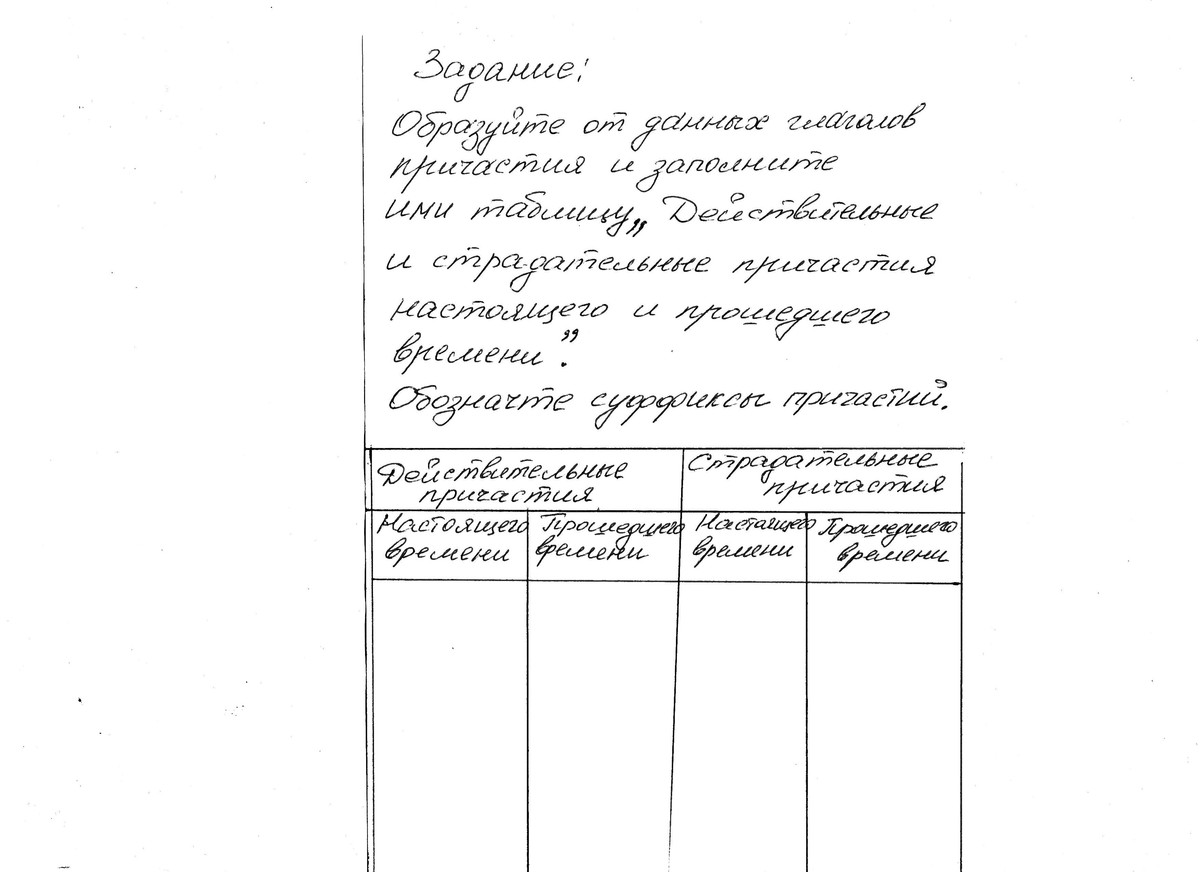 Задание:
Образуйте от данных глаголов
причастия и заполните
ими таблицу „Действительные
и страдательные причастия
настоящего и прошедшего
времени".
Обозначте суффиксы причастий.
Действительные
причастия
Страдательные
причастия
Настоящего
времени
Прошедшего
времени
Настаящего
времени
Прошедшего
времени